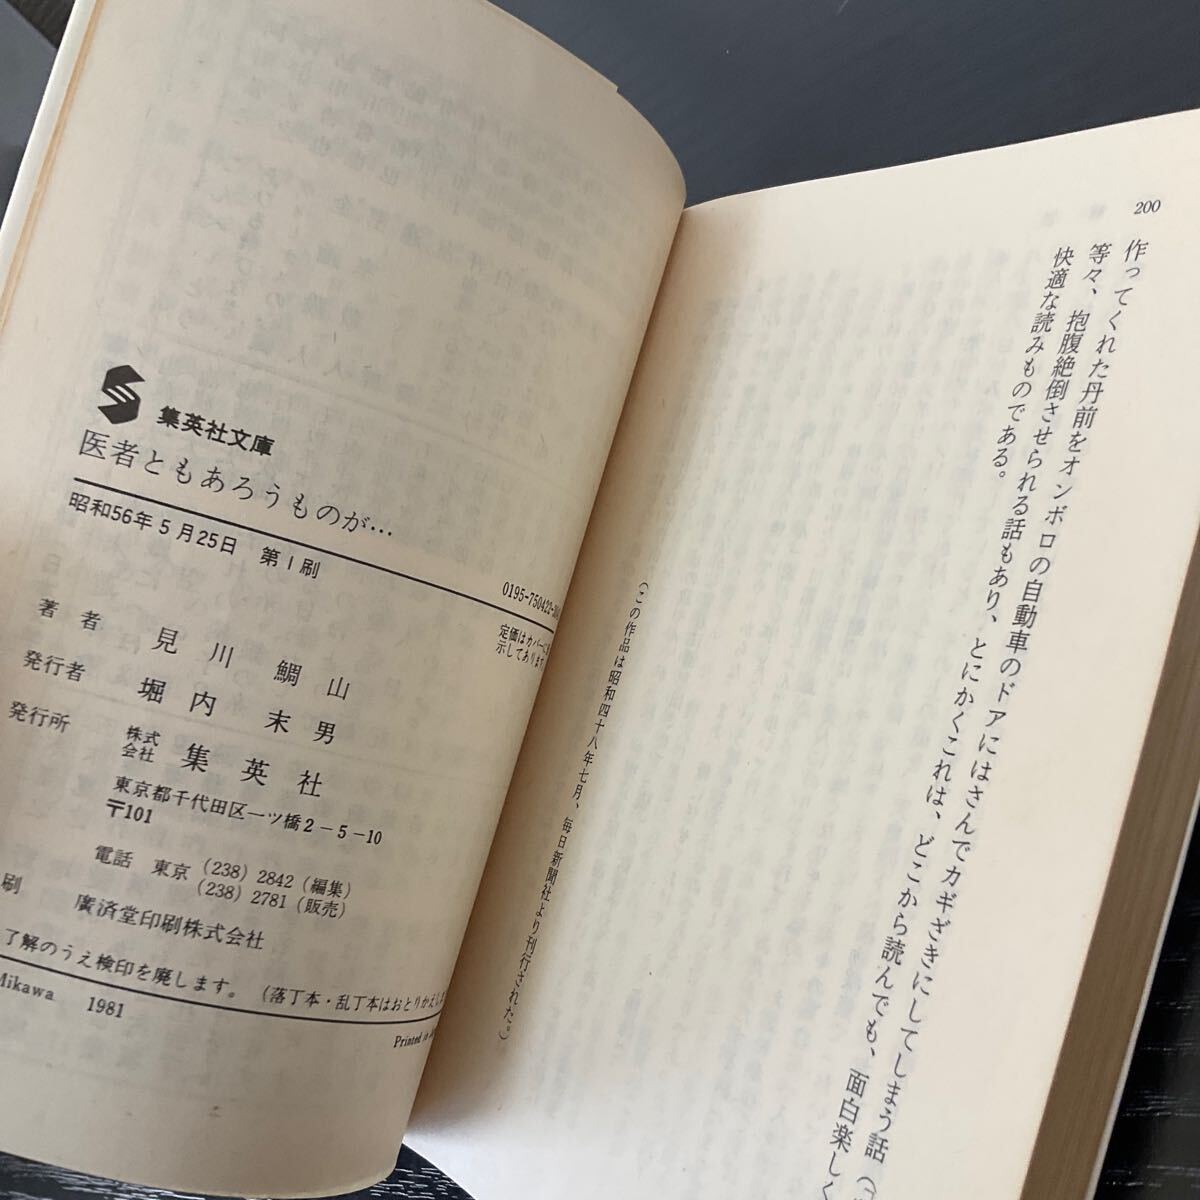 200
作ってくれた丹前をオンボロの自動車のドアにはさんでカギざきにしてしまう話（
等々、抱腹絶倒させられる話もあり、とにかくこれは、どこから読んでも、面白楽しく
快適な読みものである。
（この作品は昭和四十八年七月、毎日新聞社より刊行された。）
集英社文庫
医者ともあろうものが…
昭和56年5月25日 第1刷
0195-750422-
定価はカバーに
示してあります
著者 見川鯛山
発行者 堀内末男
発行所 株式会社 集英社
東京都千代田区一ツ橋2-5-10
〒101
電話 東京 (238) 2842 (編集)
(238) 2781 (販売)
刷 廣済堂印刷株式会社
了解のうえ検印を廃します。 (落丁本・乱丁本はおとりかえし
Mikawa 1981
Printed in